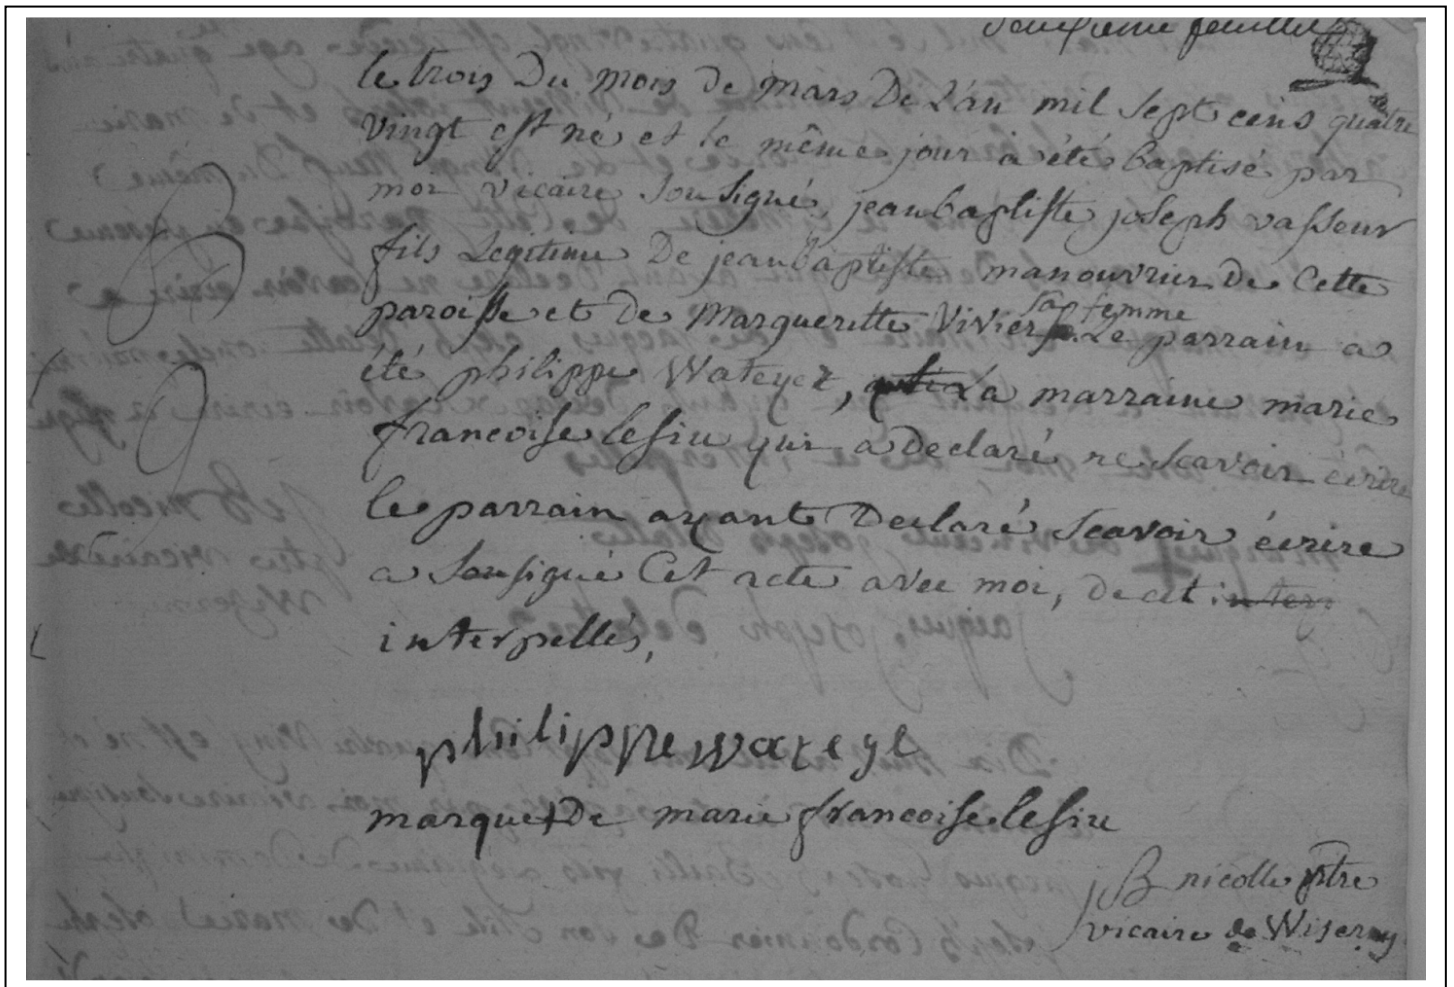 Deuxieme feuillet
le trois Du mois de mars De L'an mil sept cens quatre
vingt est né et le même jour a été baptisé par
moi vicaire Sousigné, jeanbaptiste joseph vasseur
fils Legitime De jeanbaptiste manouvrier de Cette
paroisse et de Marguerette Vivier sa femme Le parrain a
été philippe Wateyez, La marraine marie
francoise lesiu qui a Declaré ne scavoir écrire
le parrain ayant Declaré Scavoir écrire
a Sousigné Cet acte avec moi, de cet
interpellés,
philippe wateyé
marque + De marie francoise lesiu
jB nicolle ptre
vicaire de Wisernes